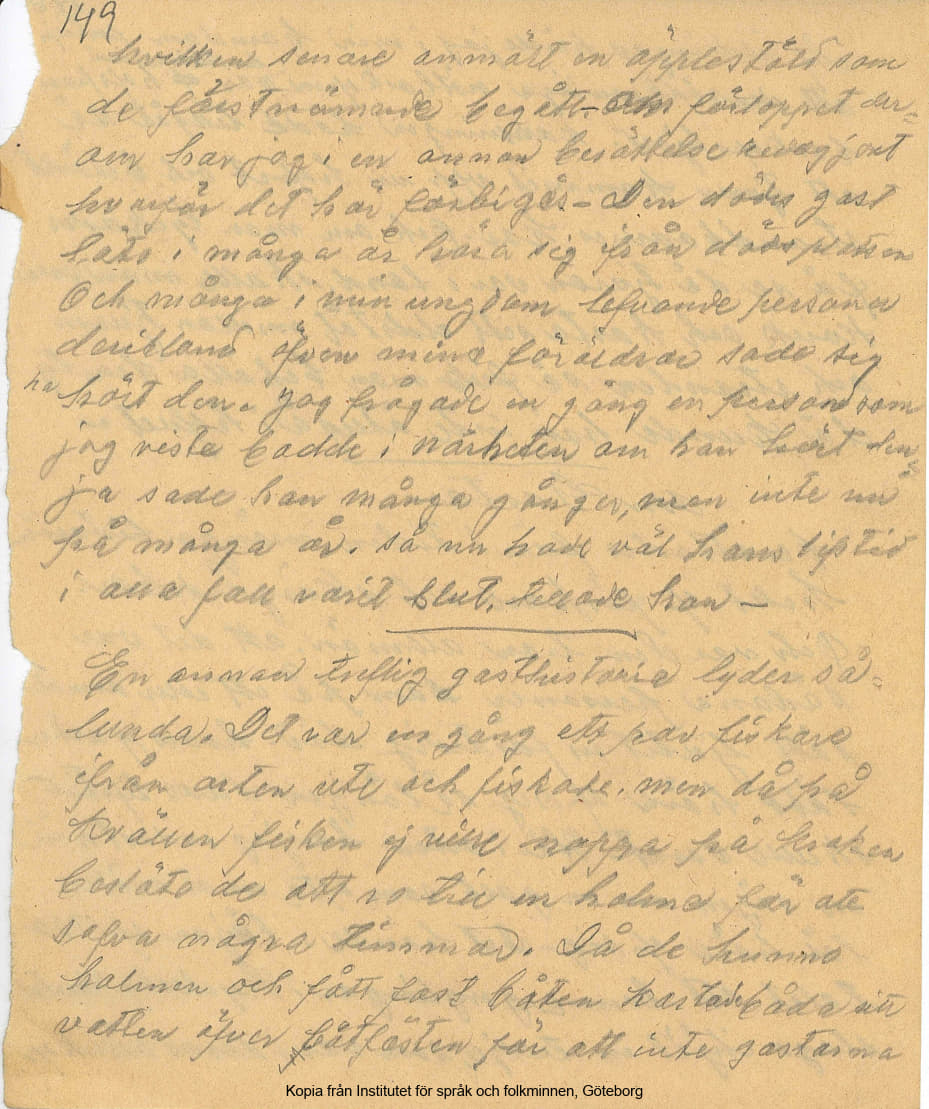 149
hvilken senare anmält en äpplestöld som
de förstnämnde begått – Om förloppet der=
om har jag i en annan berättelse redogjort
hvarför det här förbigås – Den dödes gast
läts i många år höra sig ifrån dödsplatsen
Och många i min ungdom lefvande personer
deribland öfven mina föräldrar sade sig
ha hört den. Jag frågade en gång en person som
jag viste bodde i närheten om han hört den=
ja sade han många gånger, men inte nu
på många år. så nu hade väl hans lifstid
i alla fall varit slut, tillade han –
En annan luftig gasthistoria lyder så=
lunda. Det var en gång ett par fiskare
ifrån orten ute och fiskade. men då på
kvällen fisken ej ville nappa på kroken
beslöto de att ro till en holme för att
sofva några timmar. Då de hunno
holmen och fått fast båten kastade båda sitt
vatten öfver båtfästen för att inte gastarna
Kopia från Institutet för språk och folkminnen, Göteborg